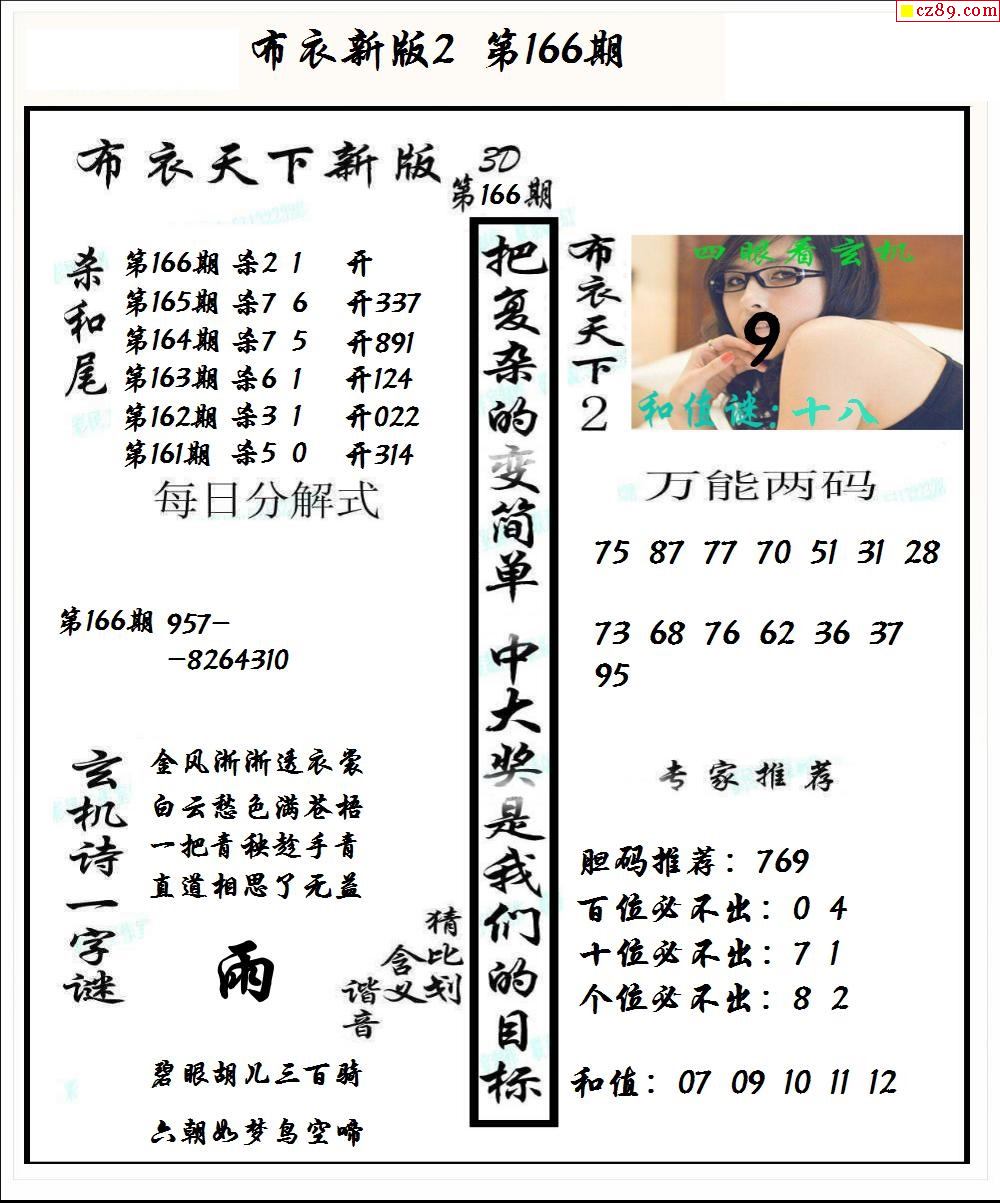 cz89.com
布衣新版2 第166期
布衣天下新版
3D
第166期
杀和尾
第166期 杀2 1 开
第165期 杀7 6 开337
第164期 杀7 5 开891
第163期 杀6 1 开124
第162期 杀3 1 开022
第161期 杀5 0 开314
每日分解式
第166期 957-
-8264310
玄机诗一字谜
金风浙浙透衣裳
白云愁色满苍梧
一把青秧趁手青
直道相思了无益
雨
猜比划
含义
谐音
碧眼胡儿三百骑
六朝如梦鸟空啼
把复杂的变简单 中大奖是我们的目标
布衣天下2
四眼看玄机
9
和值谜:十八
万能两码
75 87 77 70 51 31 28
73 68 76 62 36 37
95
专家推荐
胆码推荐：769
百位必不出：0 4
十位必不出：7 1
个位必不出：8 2
和值：07 09 10 11 12